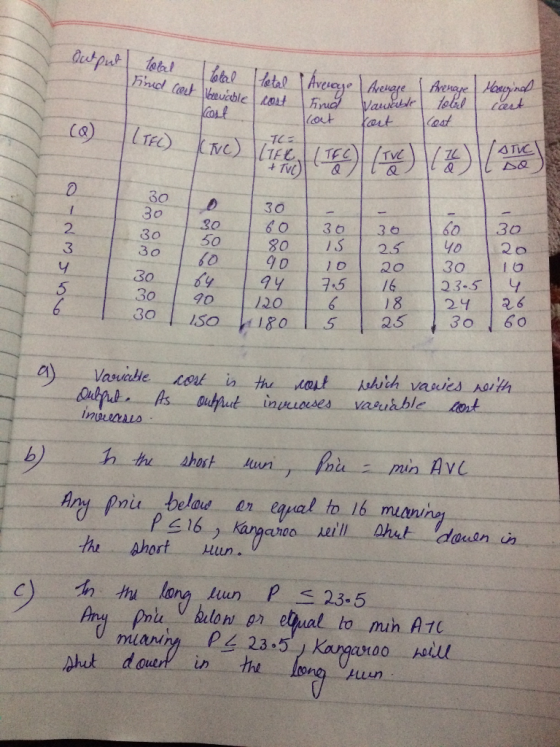 Output Total Total Total Average Average Average Marginal
Fixed cost Variable cost Fixed Variable total cost
cost cost cost cost
(Q) (TFC) (TVC) TC = (TFC + TVC) (TFC/Q) (TVC/Q) (TC/Q) (ΔTVC/ΔQ)
0 30 0 30 - - - -
1 30 30 60 30 30 60 30
2 30 50 80 15 25 40 20
3 30 60 90 10 20 30 10
4 30 64 94 7.5 16 23.5 4
5 30 90 120 6 18 24 26
6 30 150 180 5 25 30 60
a) Variable cost is the cost which varies with
output. As output increases variable cost
increases.
b) In the short run, Price = min AVC
Any price below or equal to 16 meaning
P ≤ 16, Kangaroo will shut down in
the short run.
c) In the long run P ≤ 23.5
Any price below or equal to min ATC
meaning P ≤ 23.5, Kangaroo will
shut down in the long run